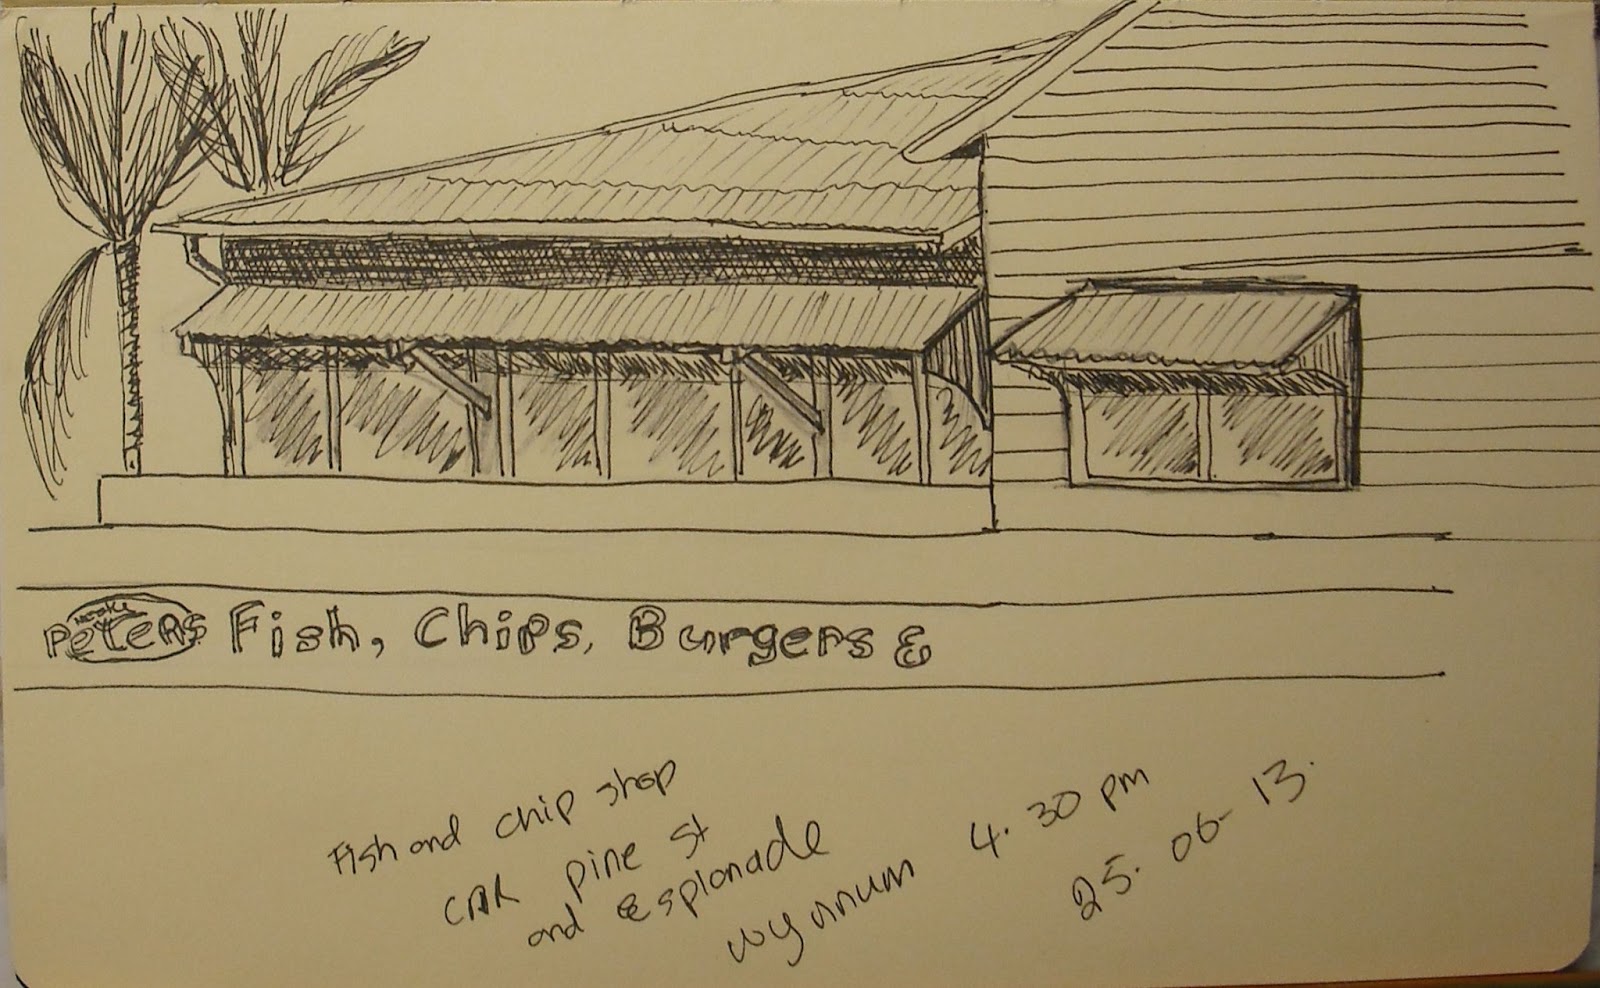 Peters Fish, Chips, Burgers &
Fish and chip shop
CAR pine st
and Esplonade
wynnum 4.30 pm
25.06-13.